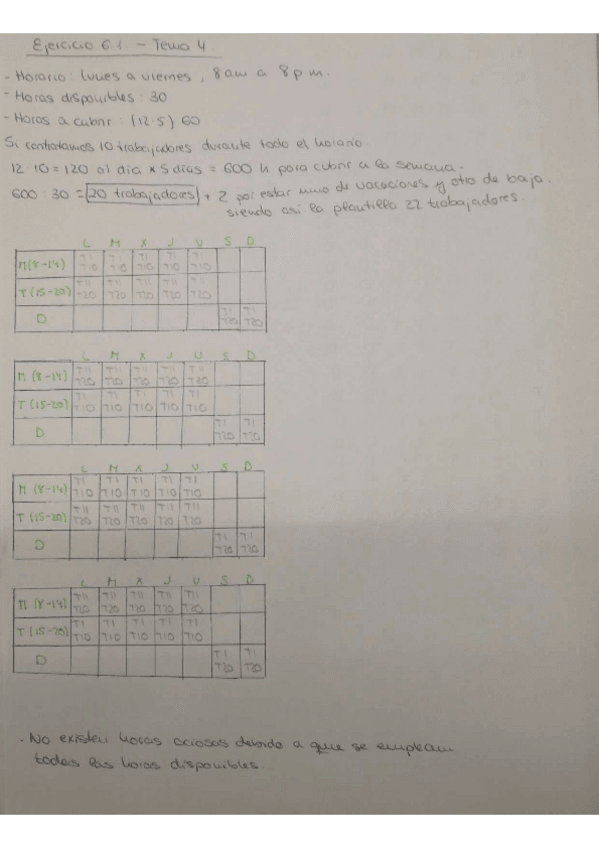 Ejercicio 6.1. - Tema 4.
- Horario: lunes a viernes, 8am a 8pm.
- Horas disponibles: 30
- Horas a cubrir: (12·5) 60
Si contratamos 10 trabajadores durante todo el horario.
12·10 = 120 al dia * 5 días = 600 h para cubrir a la semana.
600 : 30 = 20 trabajadores + 2 por estar uno de vacaciones y otro de baja.
siendo así la plantilla 22 trabajadores.
L M X J V S D
M (8-14) T1 T1 T1 T1 T1
T10 T10 T10 T10 T10
T (15-20) T11 T11 T11 T11 T11
T20 T20 T20 T20 T20
D T1 T1
T20 T20
L M X J V S D
M (8-14) T11 T11 T11 T11 T11
T20 T20 T20 T20 T20
T (15-20) T1 T1 T1 T1 T1
T10 T10 T10 T10 T10
D T1 T1
T20 T20
L M X J V S D
M (8-14) T1 T1 T1 T1 T1
T10 T10 T10 T10 T10
T (15-20) T11 T11 T11 T11 T11
T20 T20 T20 T20 T20
D T1 T1
T20 T20
L M X J V S D
M (8-14) T11 T11 T11 T11 T11
T20 T20 T20 T20 T20
T (15-20) T1 T1 T1 T1 T1
T10 T10 T10 T10 T10
D T1 T1
T20 T20
. No existen horas ociosas debido a que se emplean
todas las horas disponibles.